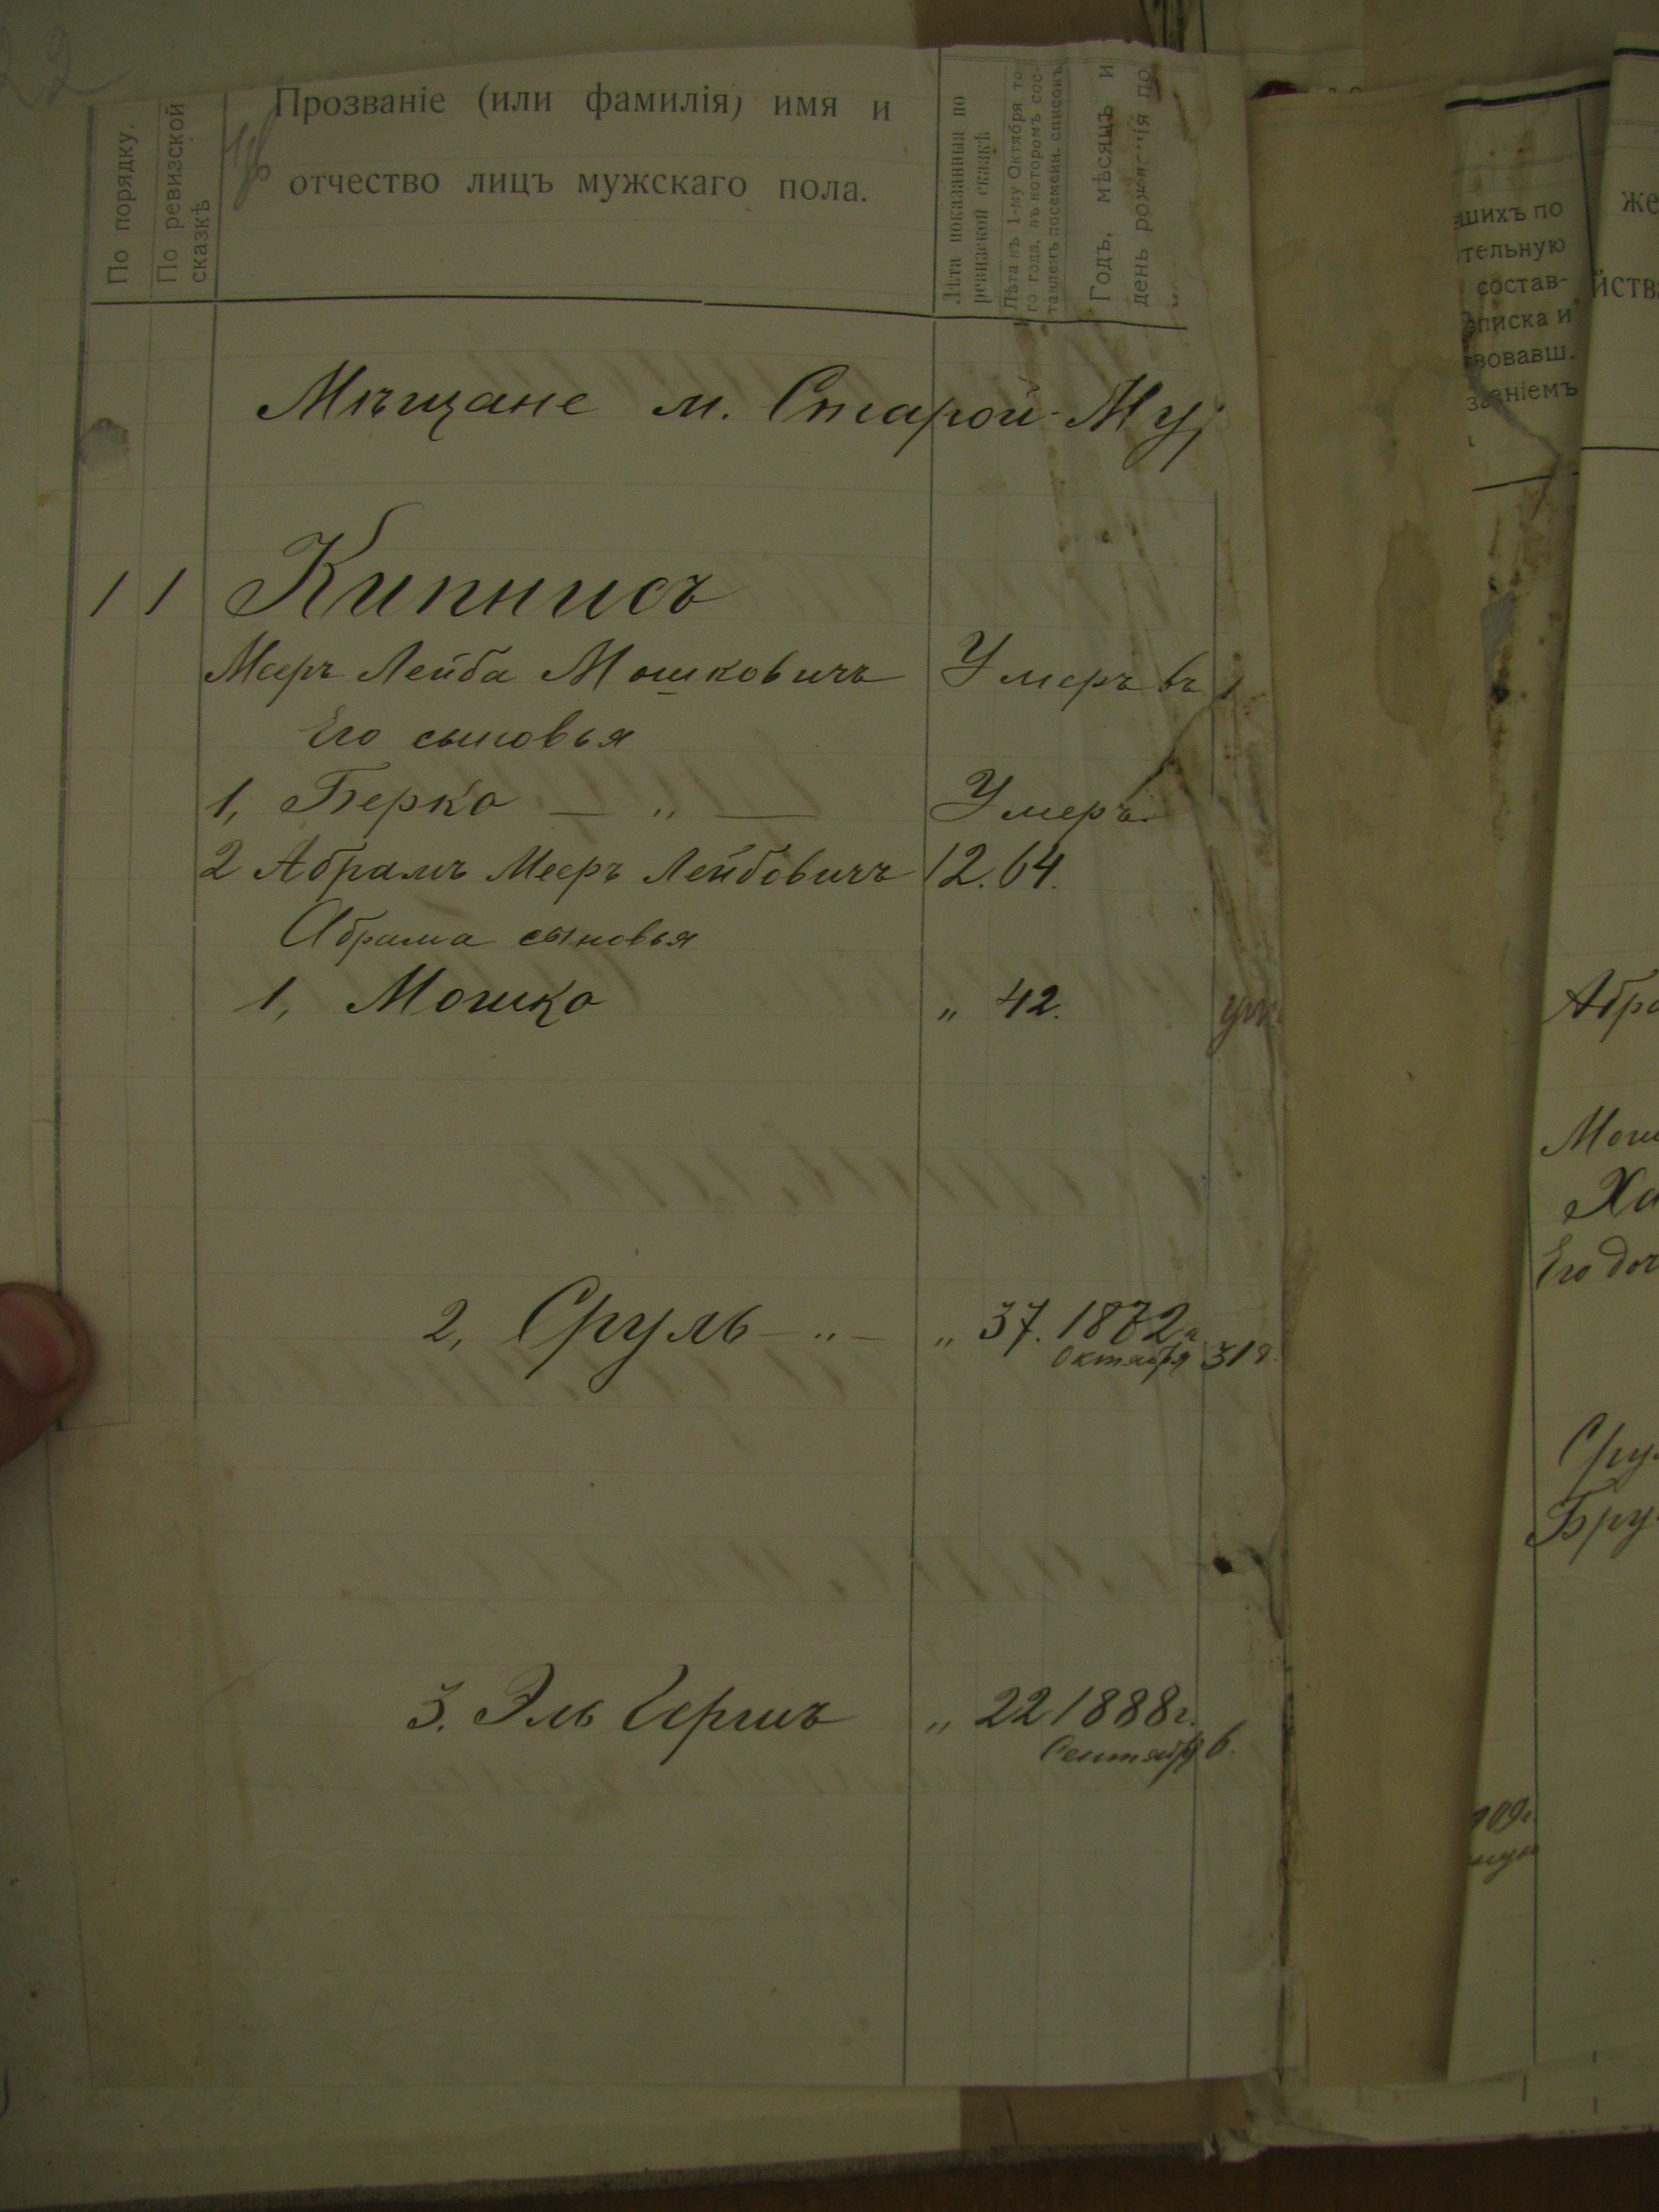 22
По порядку.
По ревизской сказкѣ
Прозваніе (или фамилія) имя и
отчество лицъ мужскаго пола.
Лѣта показанныя по
ревизской сказкѣ
Лѣта къ 1-му Октября то-
го года, въ которомъ сос-
тавленъ посемейн. списокъ
Годъ, мѣсяцъ и
день рожденія по
Мѣщане м. Старой-Му
1 1 Кипнисъ
Мееръ Лейба Мошковичъ Умеръ въ
Его сыновья
1, Берко — „ — Умеръ.
2 Абрамъ Мееръ Лейбовичъ 12. 64.
Абрама сыновья
1, Мошко „ 42.
2, Сруль — „ — „ 37. 1872г.
Октября 31д.
3. Эль Гершъ „ 22 1888г.
Сентября 6.
вшихъ по
тельную
состав-
списка и
вовавш.
заніемъ
же
йств
Абра
Мош
Ха
Его доч
Сру
Бру
909г.